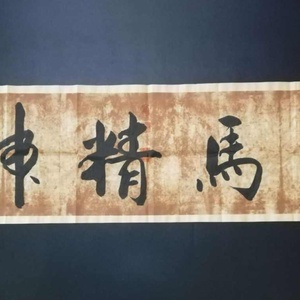 馬精神